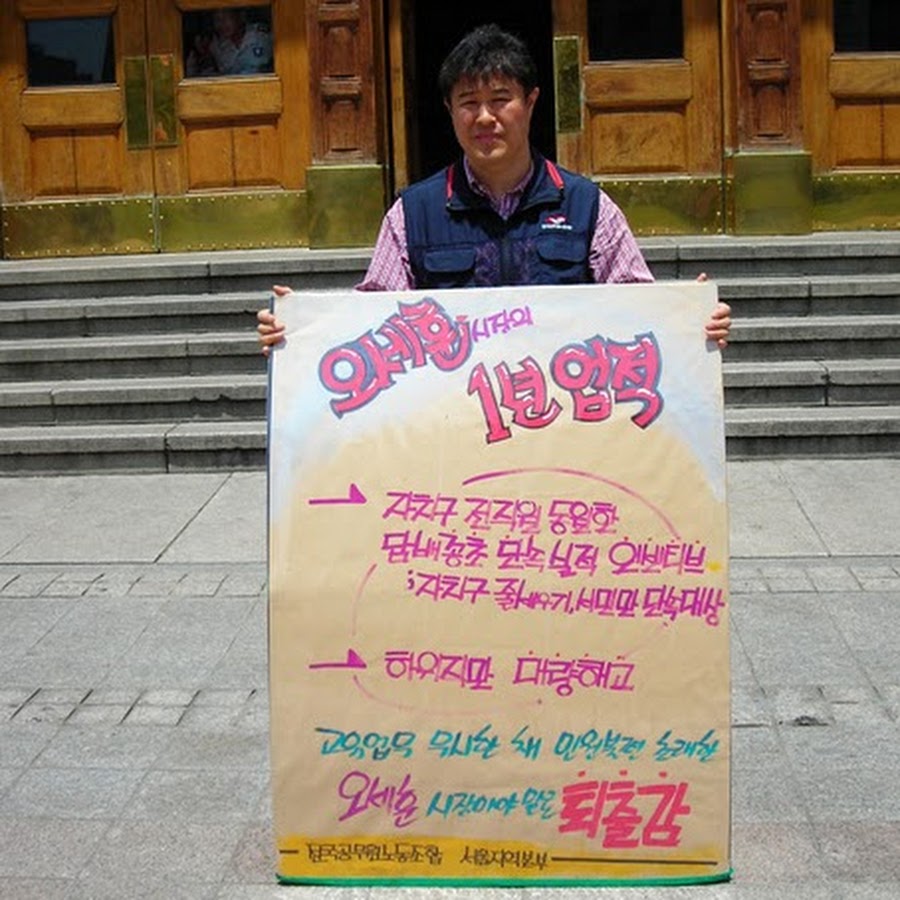 오세훈 시장의
1년 업적
자치구 전직원 동원한
담배꽁초 단속 실적 인센티브
; 자치구 줄세우기, 서민만 단속대상
하위직만 대량해고
고유업무 무시한 채 민원불편 초래한
오세훈 시장이야말로 퇴출감
전국공무원노동조합 서울지역본부